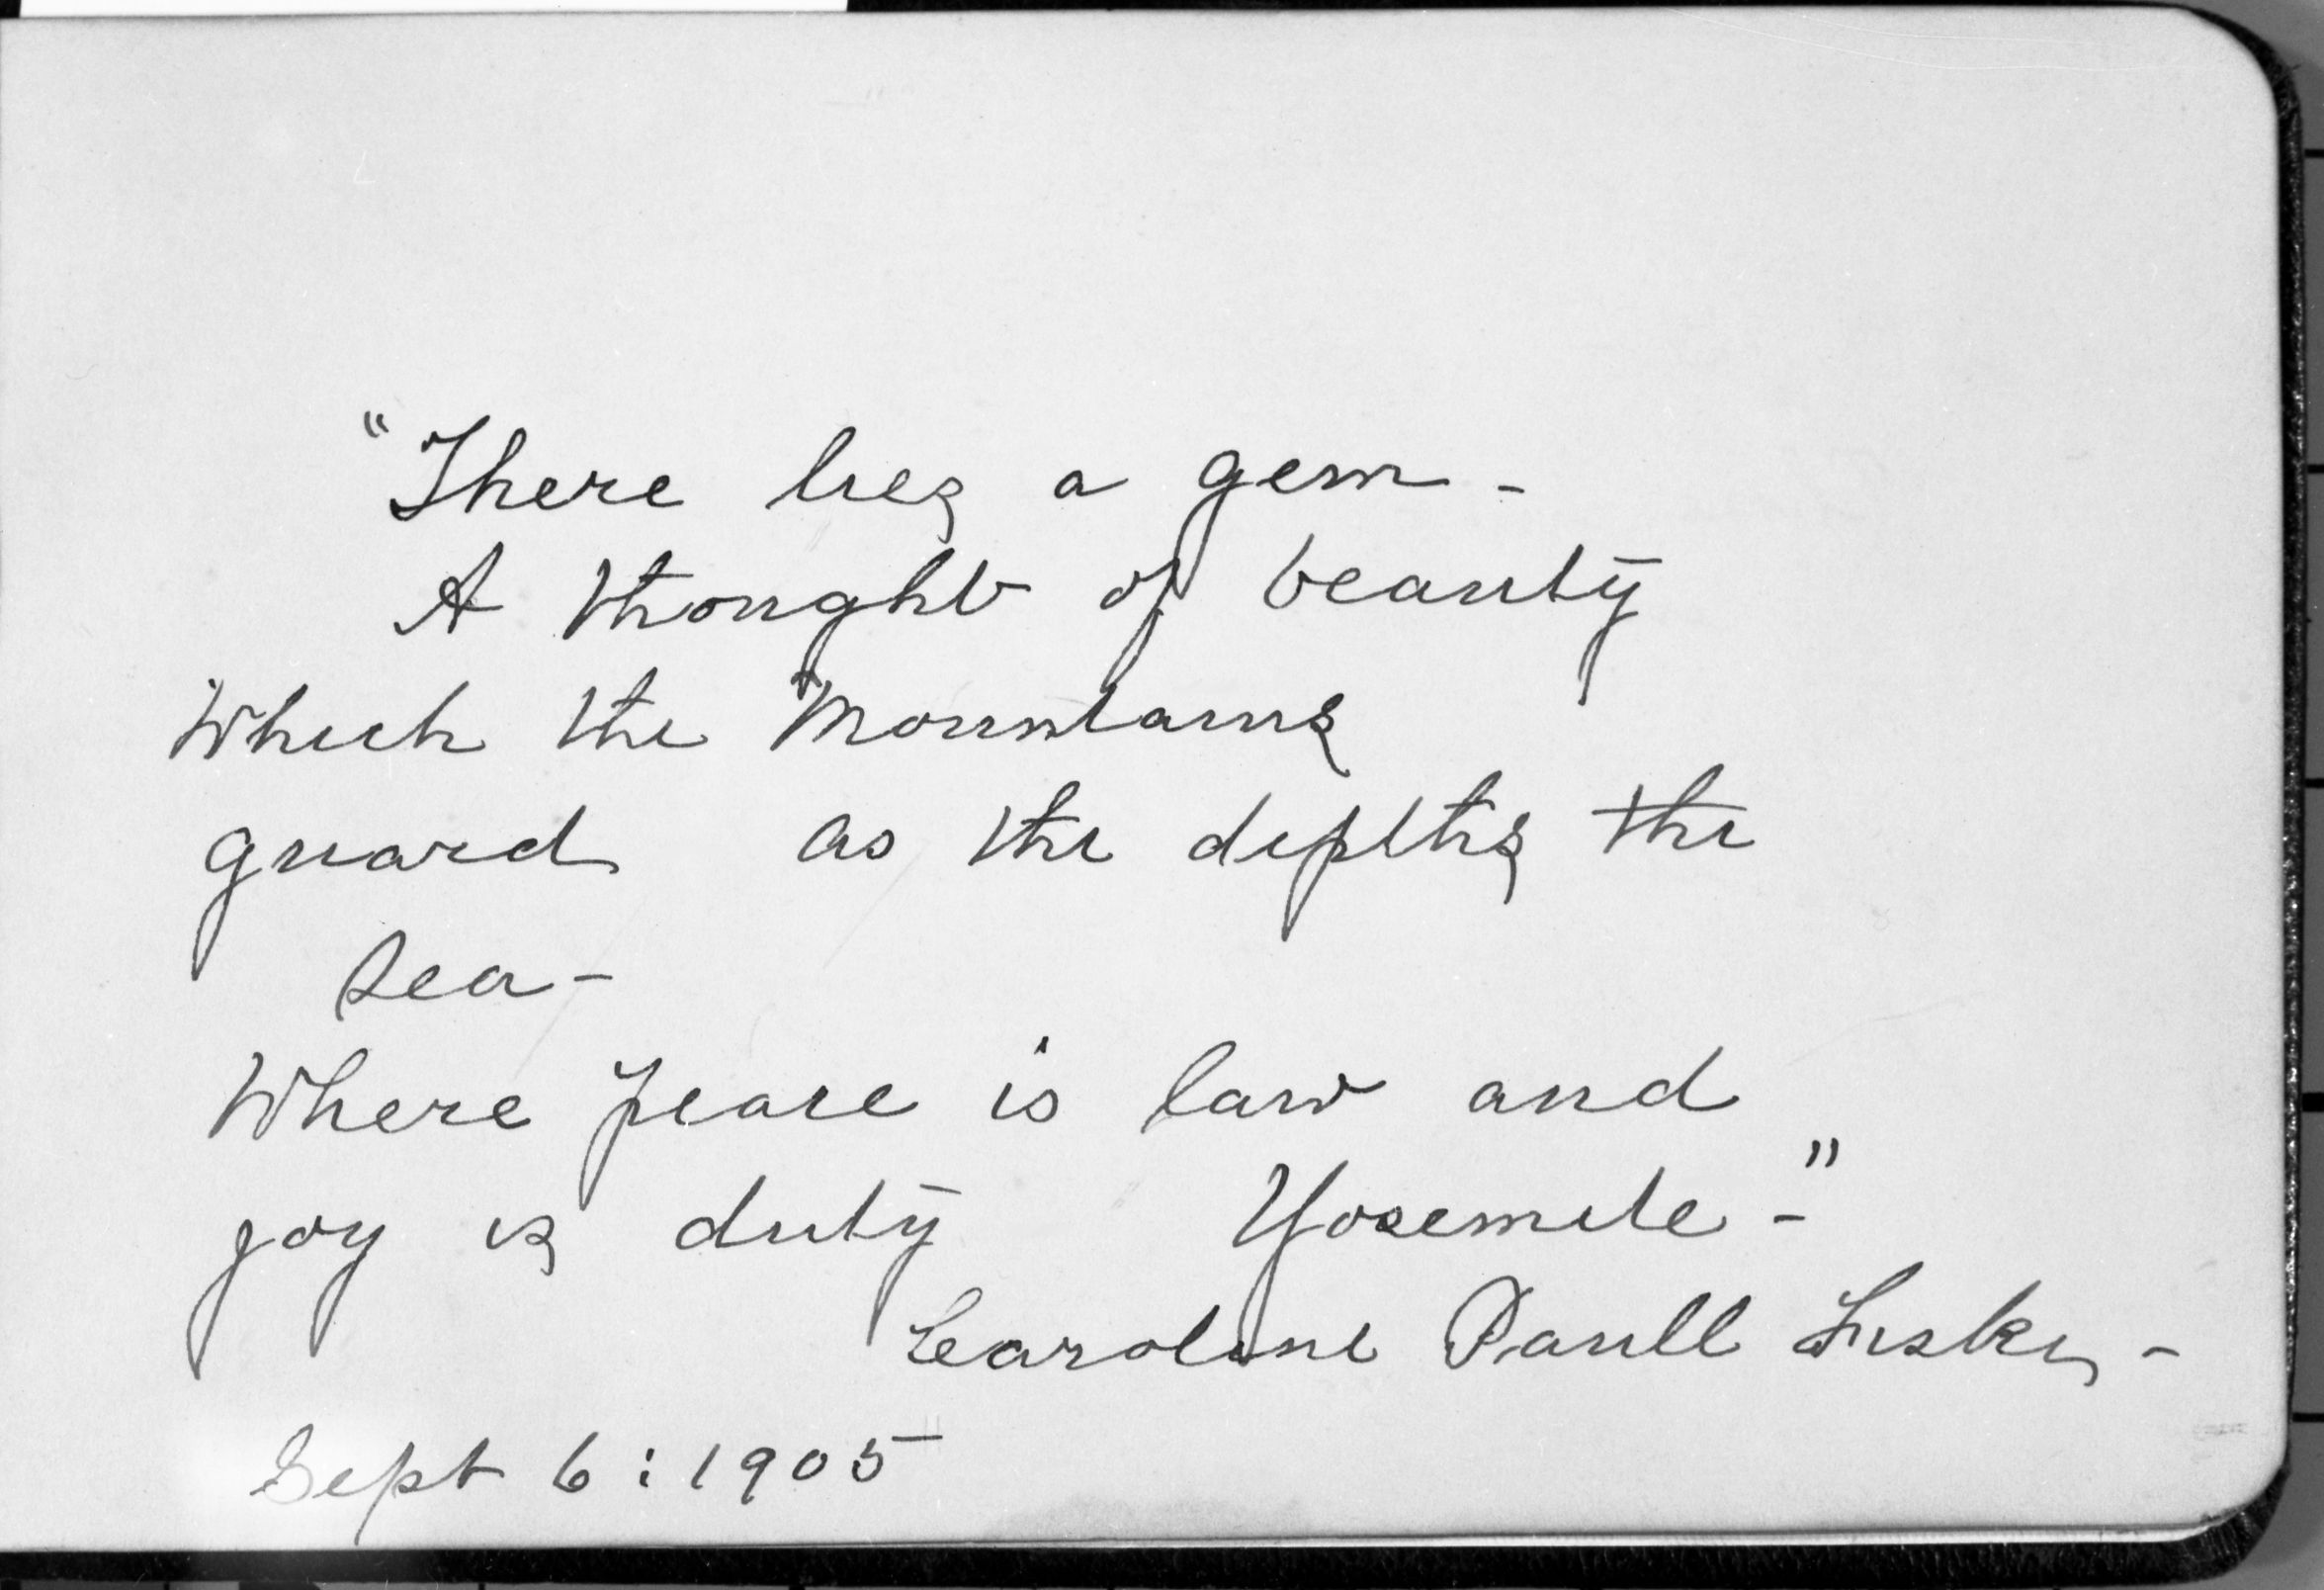 "There lies a gem -
A thought of beauty
Which the Mountains
guard as the depths the
sea -
Where peace is law and
joy is duty Yosemite - "
Caroline Paull
Sept 6 : 1905